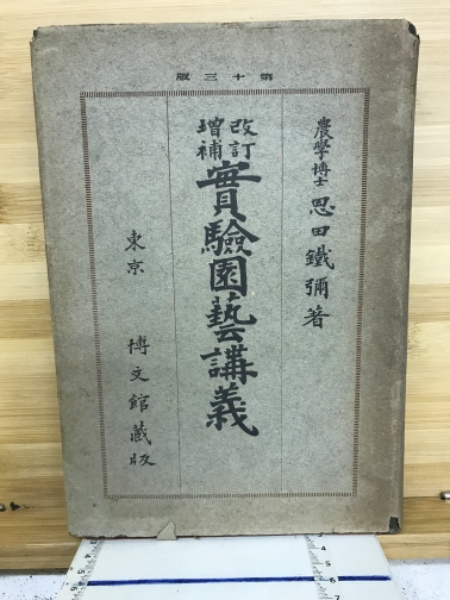 第十三版
農學博士 恩田鐵彌著
改訂
增補
實驗園藝講義
東京 博文館藏版